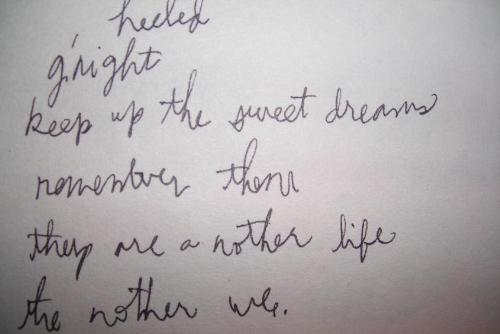 heeled
g'night
keep up the sweet dreams
remember them
they are a nother life
the nother we.